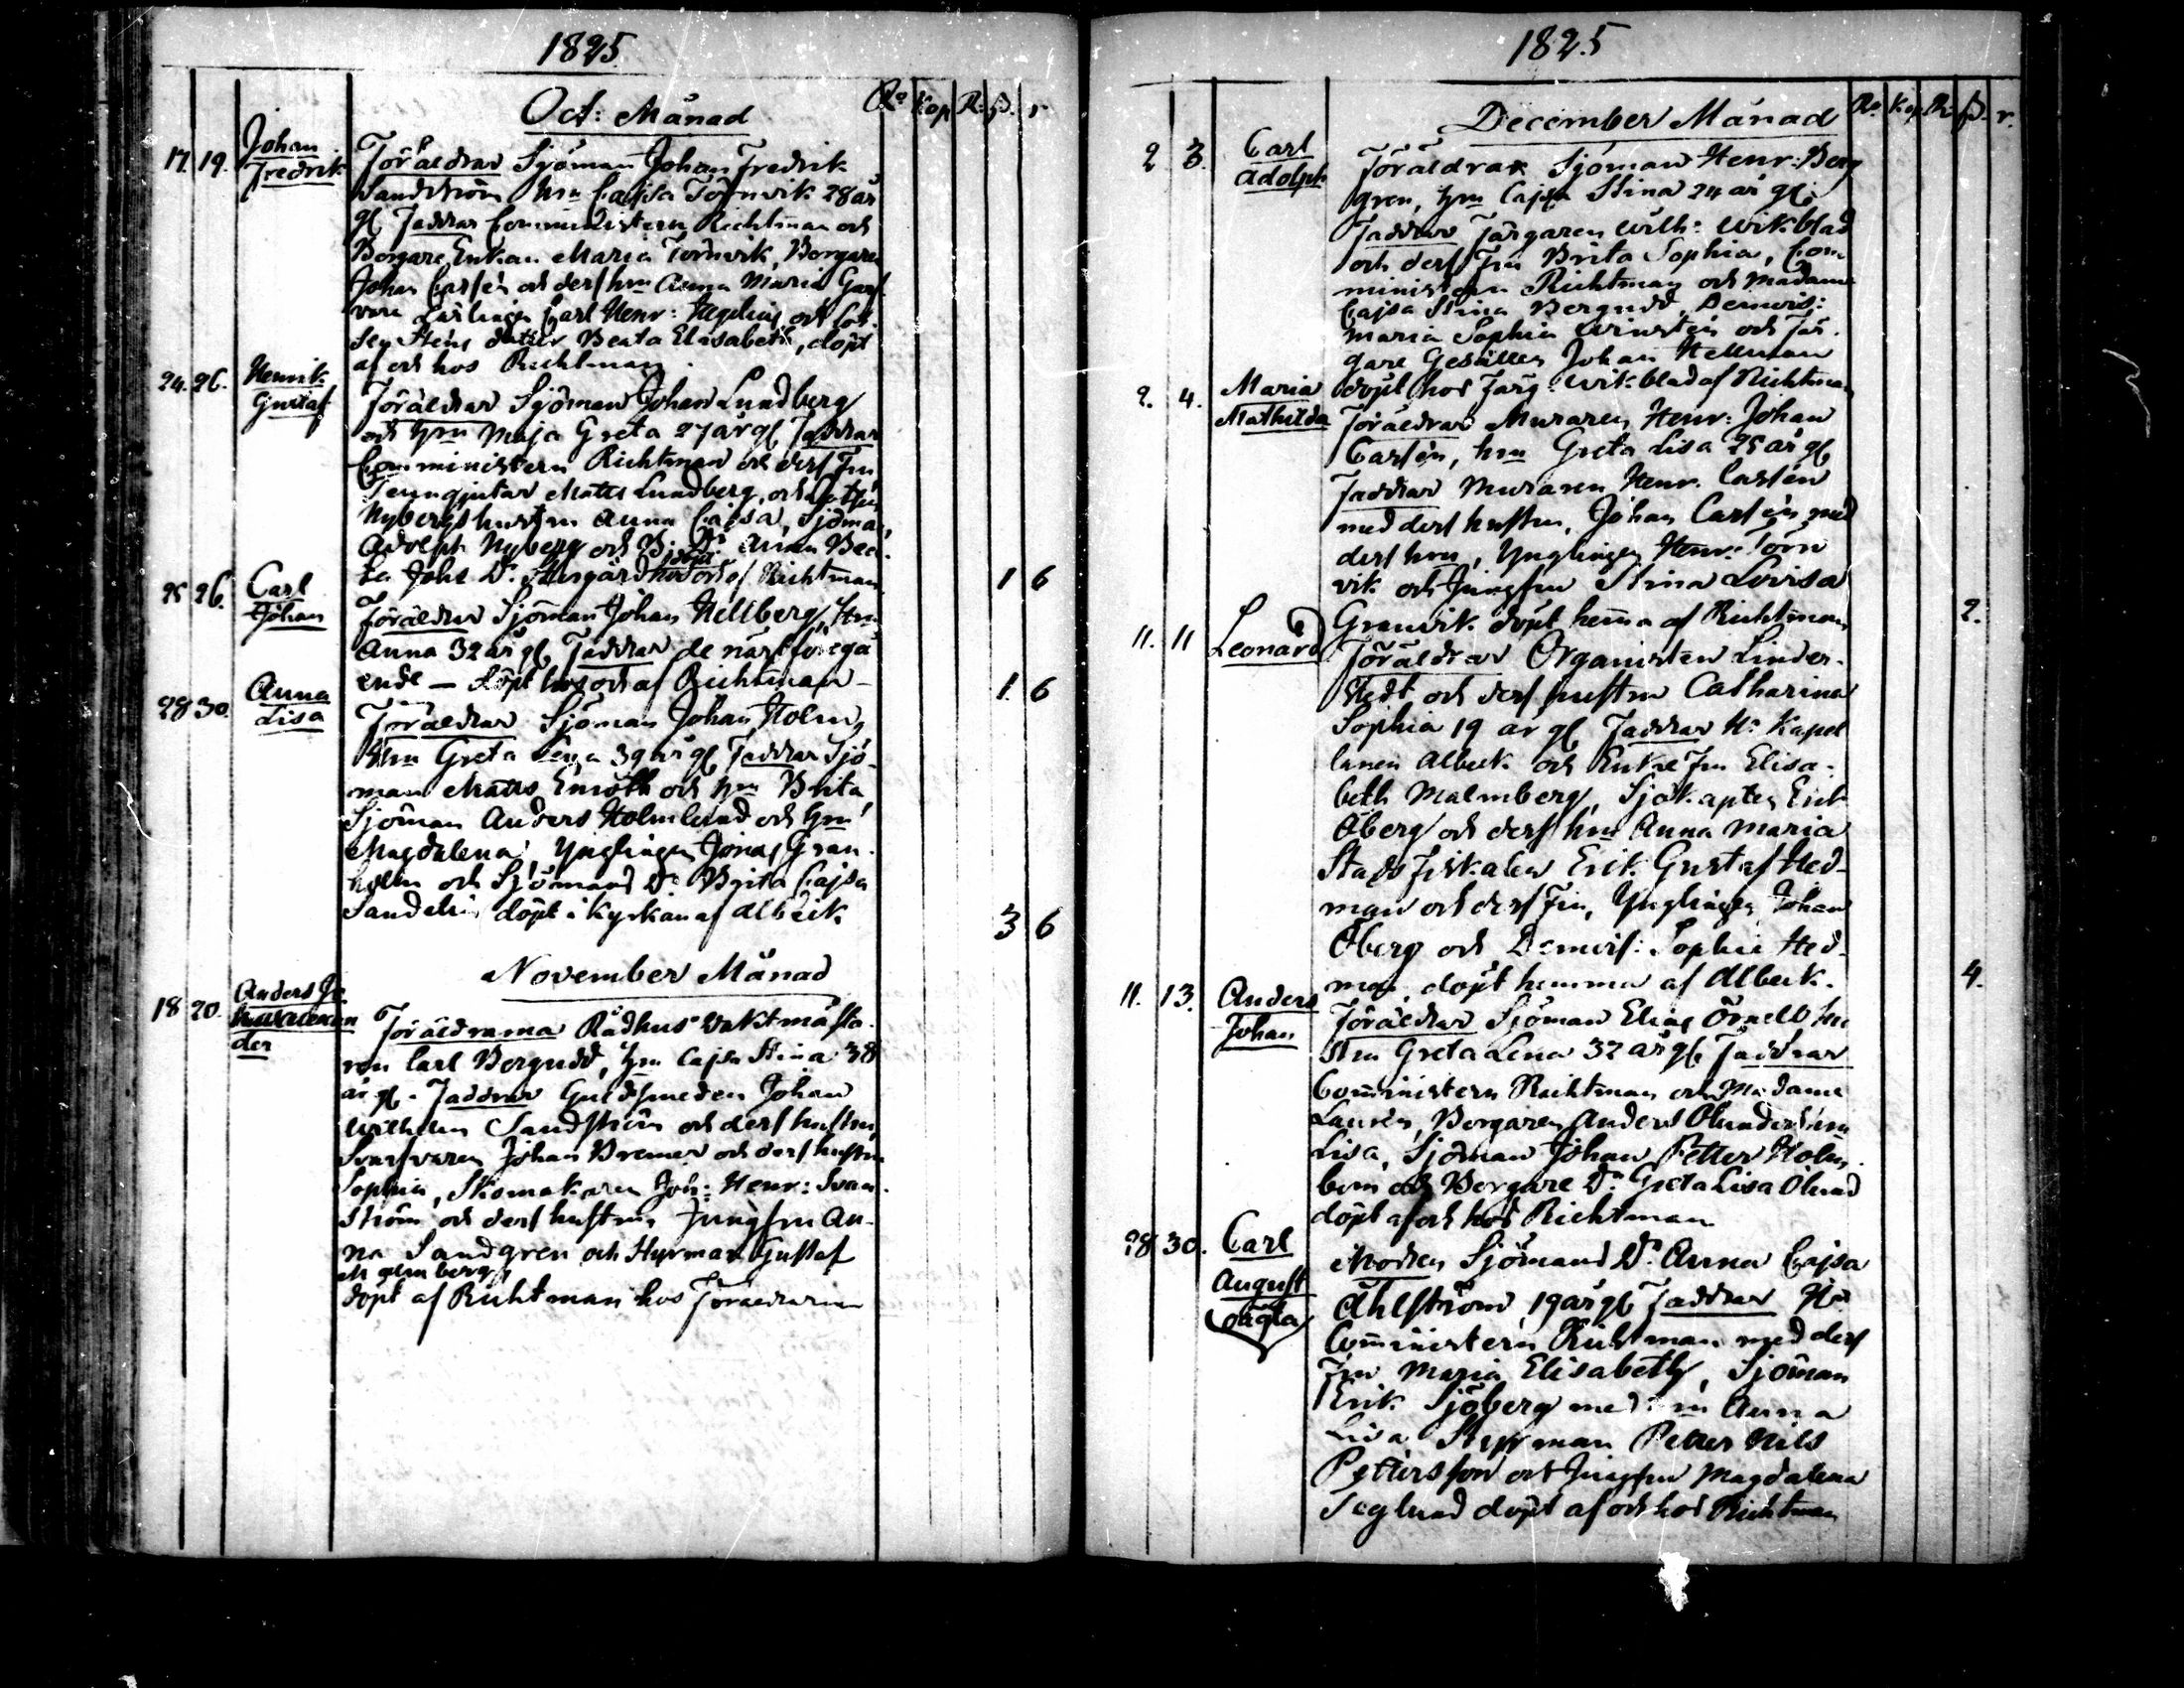 1825
Oct: Månad
Ro Kop R: ß. r
17. 19. Johan Fredrik
Föräldrar Sjöman Johan Fredrik
Sandström hm Cajsa Törnvik 28 år
gl Faddrar Comministern Richtman och
Borgare Enkan Maria Törnvik, Borgaren
Johan Carlén och dess hm Anna Maria Garf
vare Lärlingen Carl Henr: Hegelius och
dotter Beata Elisabeth, döpt
af och hos Richtman.
24. 26. Henrik Gustaf
Föräldrar Sjöman Johan Lundberg
och hm Maja Greta 27 år gl Faddrar
Comministern Richtman och dess Fru
Tenngjutar Matts Lundberg, och
Nybergs hustru Anna Cajsa, Sjöman
Adolph Nyberg och B. Dr Anna Bea
ta Johs Dr döpt hos och af Richtman
1 6
25 26. Carl Johan
Föräldrar Sjöman Johan Hellberg, Hm
Anna 32 år gl, Faddrar de näst föregå
ende — döpt hos och af Richtman —
1 6
28 30. Anna Lisa
Föräldrar Sjöman Johan Holm,
Hm Greta Lena 39 år gl, Faddrar Sjö-
man Matts Enroth och hm Brita,
Sjöman Anders Holmlund och hm
Magdalena, Ynglingen Jonas Gran
holm och Sjömans Dr Brita Cajsa
Sandelin döpt i Kyrkan af Albeck
3 6
November Månad
18 20. Anders
der
Föräldrarna Rådhus Vaktmästa
ren Carl Bergudd, hm Cajsa Stina 38
år gl. Faddrar Guldsmeden Johan
Wilhelm Sandström och dess hustru,
Svarfvaren Johan Bremer och dess hustru
Sophia, Skomakaren Joh: Henr: Svan
ström och dess hustru, Jungfru An-
na Sandgren och Styrman Gustaf
Malmberg
döpt af Richtman hos Föräldrarna
1825
December Månad
Ro. Kop R: ß. r.
2 3. Carl Adolph
Föräldrar Sjöman Henr: Berg
gren, hm Cajsa Stina 24 år gl:
Faddrar Färgaren Wilh: Wikblad
och dess Fru Brita Sophia, Com
ministern Richtman och Madame
Cajsa Stina Bergudd, Demois:
Maria Sophia och Fär
gare Gesällen Johan Hellman
döpt hos Färg: Wikblad af Richtman
2. 4. Maria Mathilda
Föräldrar Muraren Henr: Johan
Carlén, hm Greta Lisa 25 år gl
Faddrar Muraren Henr. Carlén
med dess hustru, Johan Carlén med
dess hm, Ynglingen Henr: Törn
vik och Jungfru Stina Lovisa
Granvik döpt hemma af Richtman
2.
11. 11 Leonard
Föräldrar Organisten Linder-
stedt och dess hustru Catharina
Sophia 19 år gl Faddrar Hr Kapel
lanen Albeck och Enke Fru Elisa-
beth Malmberg, Sjökapten Erik
Öberg och dess hm Anna Maria
Stads Fiskalen Erik Gustaf Hed-
man och dess Fru, Ynglingen Johan
Öberg och Demois: Sophie Hed-
man, döpt hemma af Albeck.
4.
11. 13. Anders Johan
Föräldrar Sjöman Elias Örnell hu
stru Greta Lena 32 år gl Faddrar
Comministern Richtman och Madame
Laurén, Borgaren Anders Ölund och hm
Lisa, Sjöman Johan Petter Holm
bom och Borgare Dr Greta Lisa Ölund
döpt af och hos Richtman
28 30. Carl August oägta
Modren Sjömans Dr Anna Cajsa
Åhlström, 19 år gl, Faddrar Hr
Comministern Richtman med dess
Fru Maria Elisabeth, Sjöman
Erik Sjöberg med hm Anna
Lisa Styrman Petter Nils
Pettersson och Jungfru Magdalena
Seglund döpt af och hos Richtman